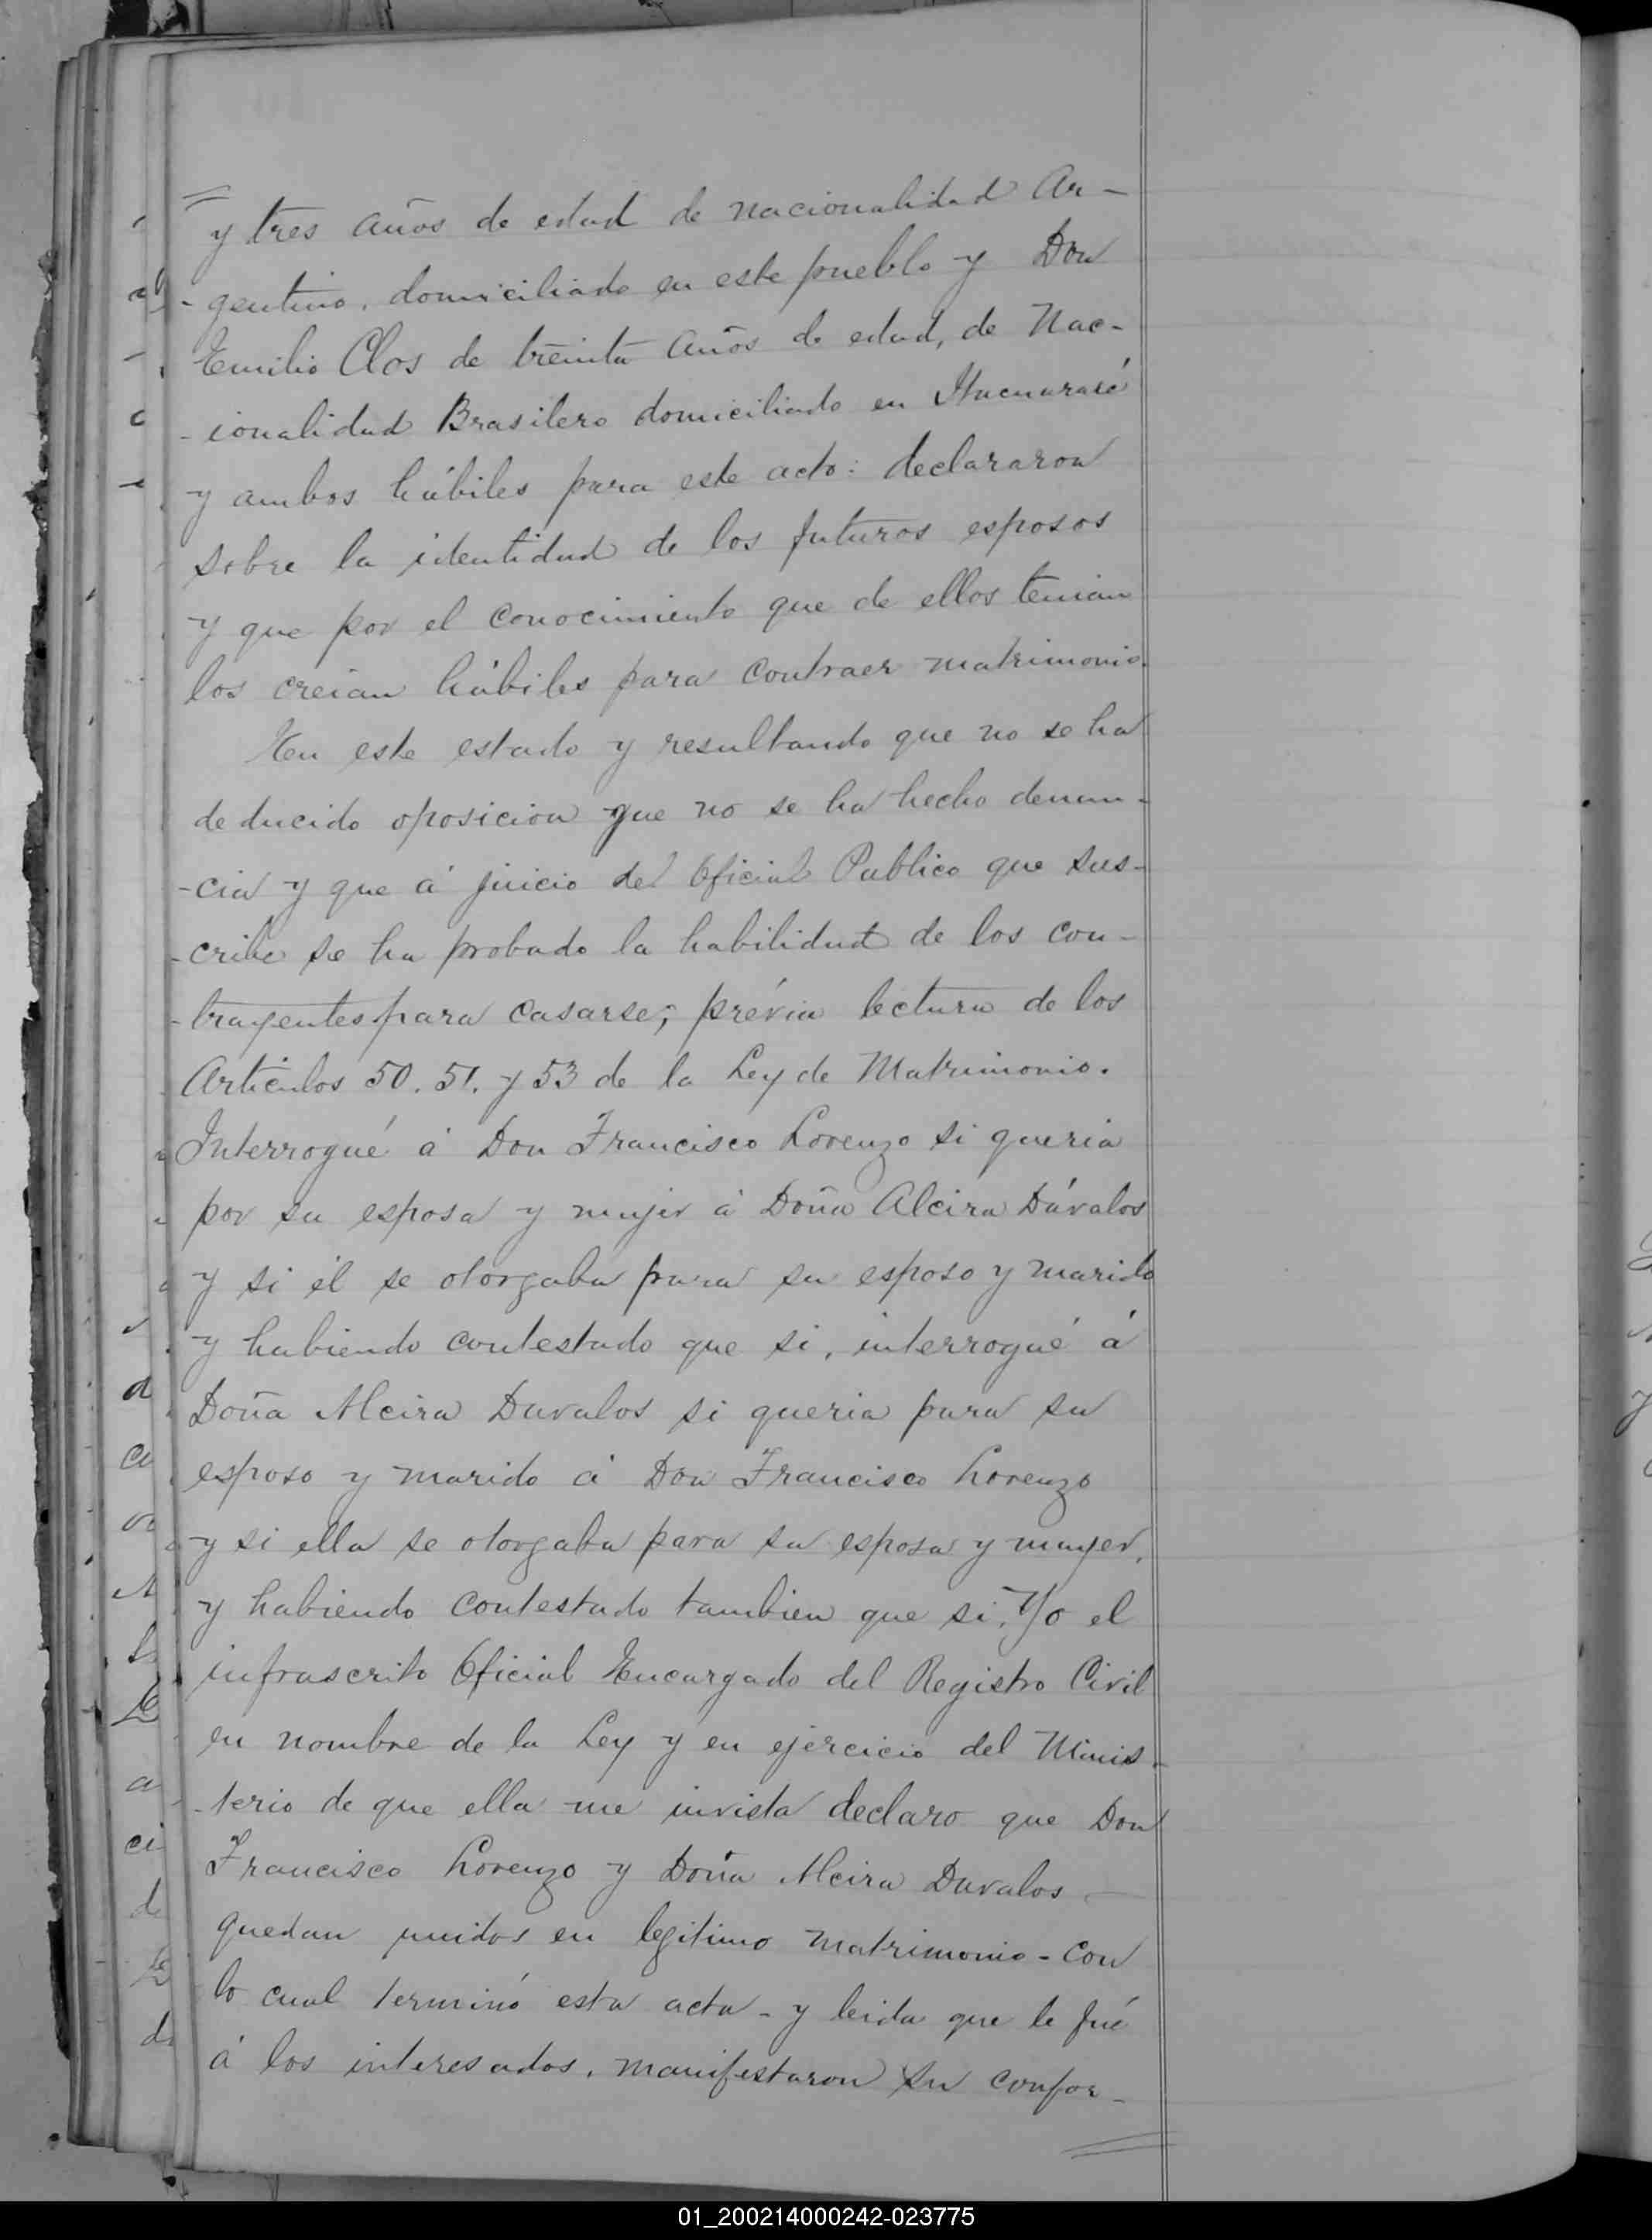 y tres años de edad de nacionalidad Ar-
-gentino, domiciliado en este pueblo y Don
Emilio Clos de treinta años de edad, de Nac-
-ionalidad Brasilero domiciliado en Itacuararé
y ambos hábiles para este acto: declararon
sobre la identidad de los futuros esposos
y que por el conocimiento que de ellos tenian
los creian hábiles para contraer matrimonio.
En este estado y resultando que no se ha
deducido oposicion que no se ha hecho denun-
-cia y que á juicio del Oficial Publico que sus-
-cribe se ha probado la habilidad de los con-
-trayentes para casarse; prévia lectura de los
Articulos 50. 51. y 53 de la Ley de Matrimonio.
Interrogué á Don Francisco Lorenzo si queria
por su esposa y mujer á Doña Alcira Dávalos
y si él se otorgaba para su esposo y marido
y habiendo contestado que si, interrogué á
Doña Alcira Davalos si queria para su
esposo y marido á Don Francisco Lorenzo
y si ella se otorgaba para su esposa y muger,
y habiendo contestado tambien que si. Yo el
infrascrito Oficial Encargado del Registro Civil
en nombre de la Ley y en ejercicio del Minis-
-terio de que ella me invista declaro que Don
Francisco Lorenzo y Doña Alcira Davalos —
quedan unidos en legitimo matrimonio - Con
lo cual terminó esta acta - y leida que le fué
á los interesados, manifestaron su confor-
01_200214000242-023775